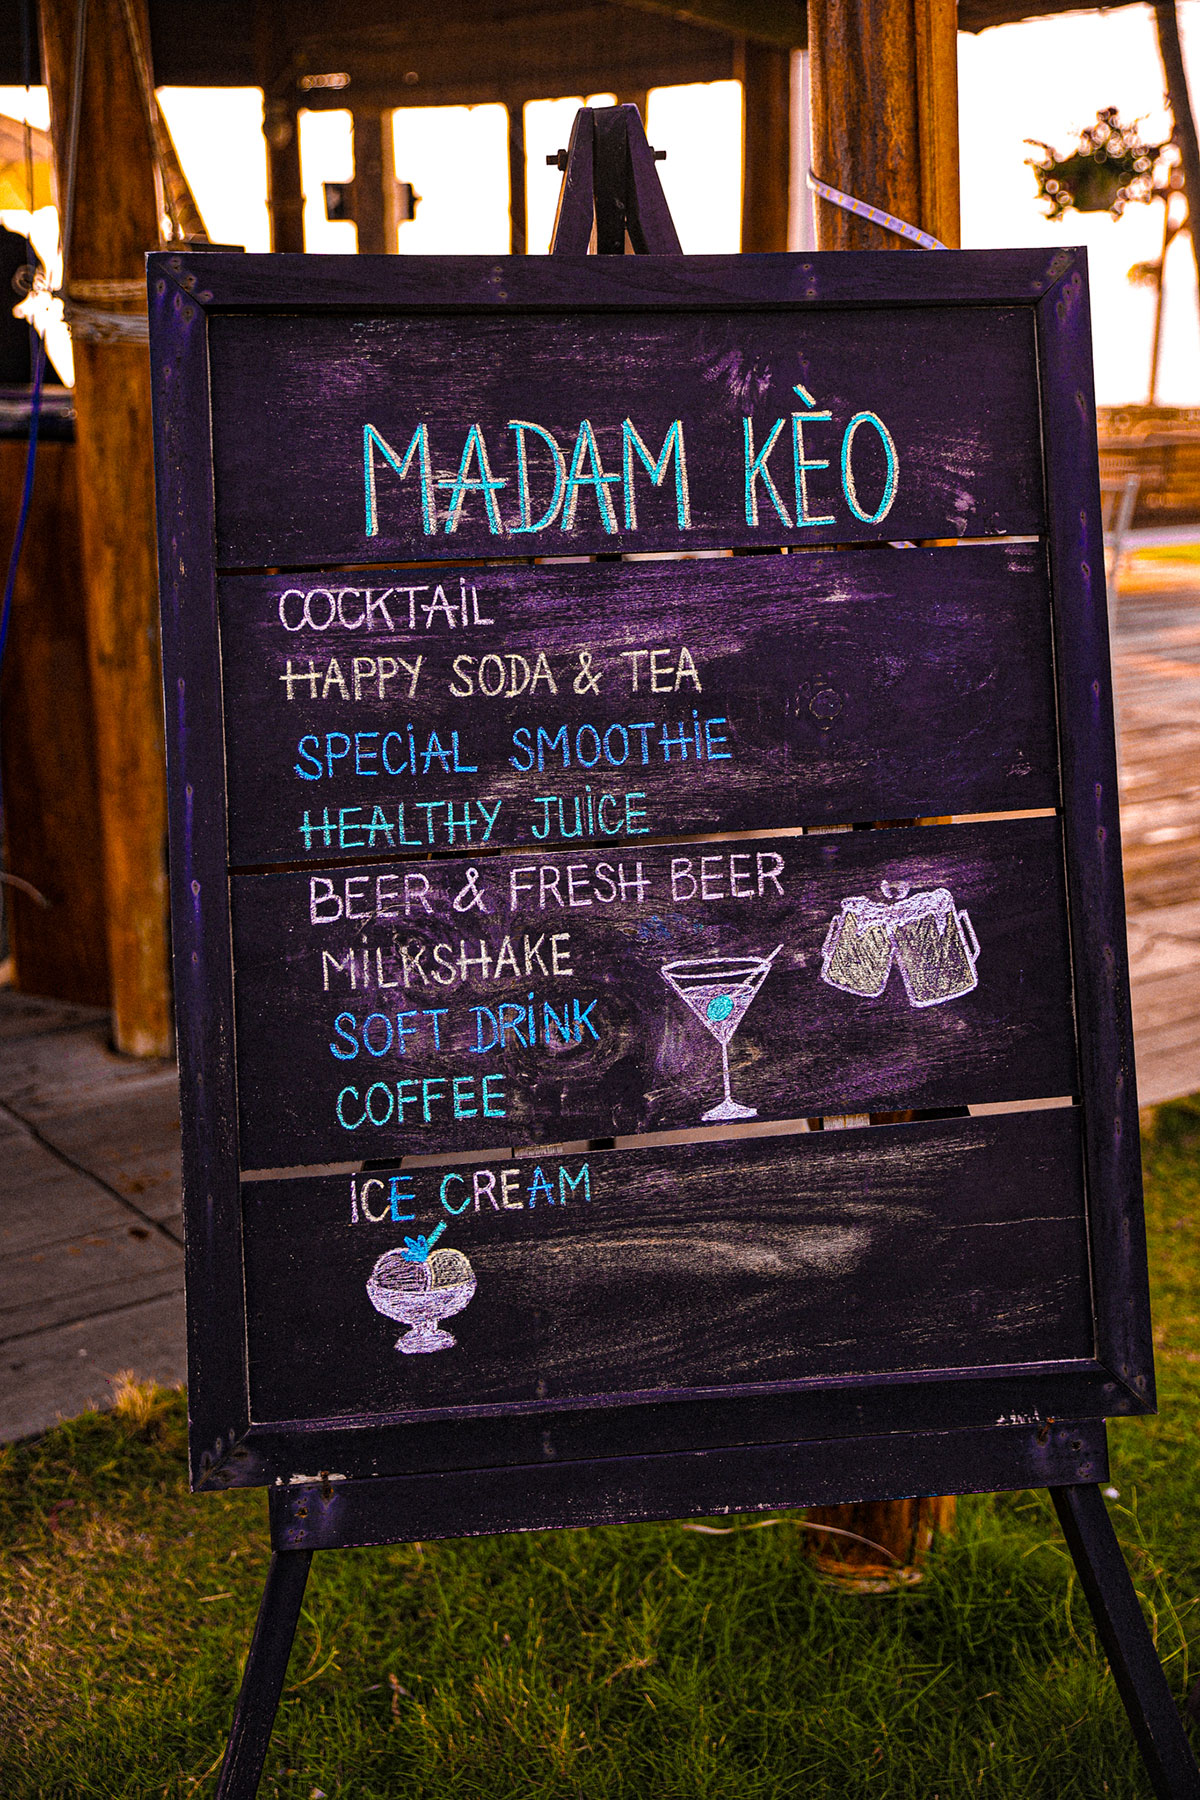 MADAM KÈO
COCKTAIL
HAPPY SODA & TEA
SPECIAL SMOOTHIE
HEALTHY JUICE
BEER & FRESH BEER
MILKSHAKE
SOFT DRINK
COFFEE
ICE CREAM